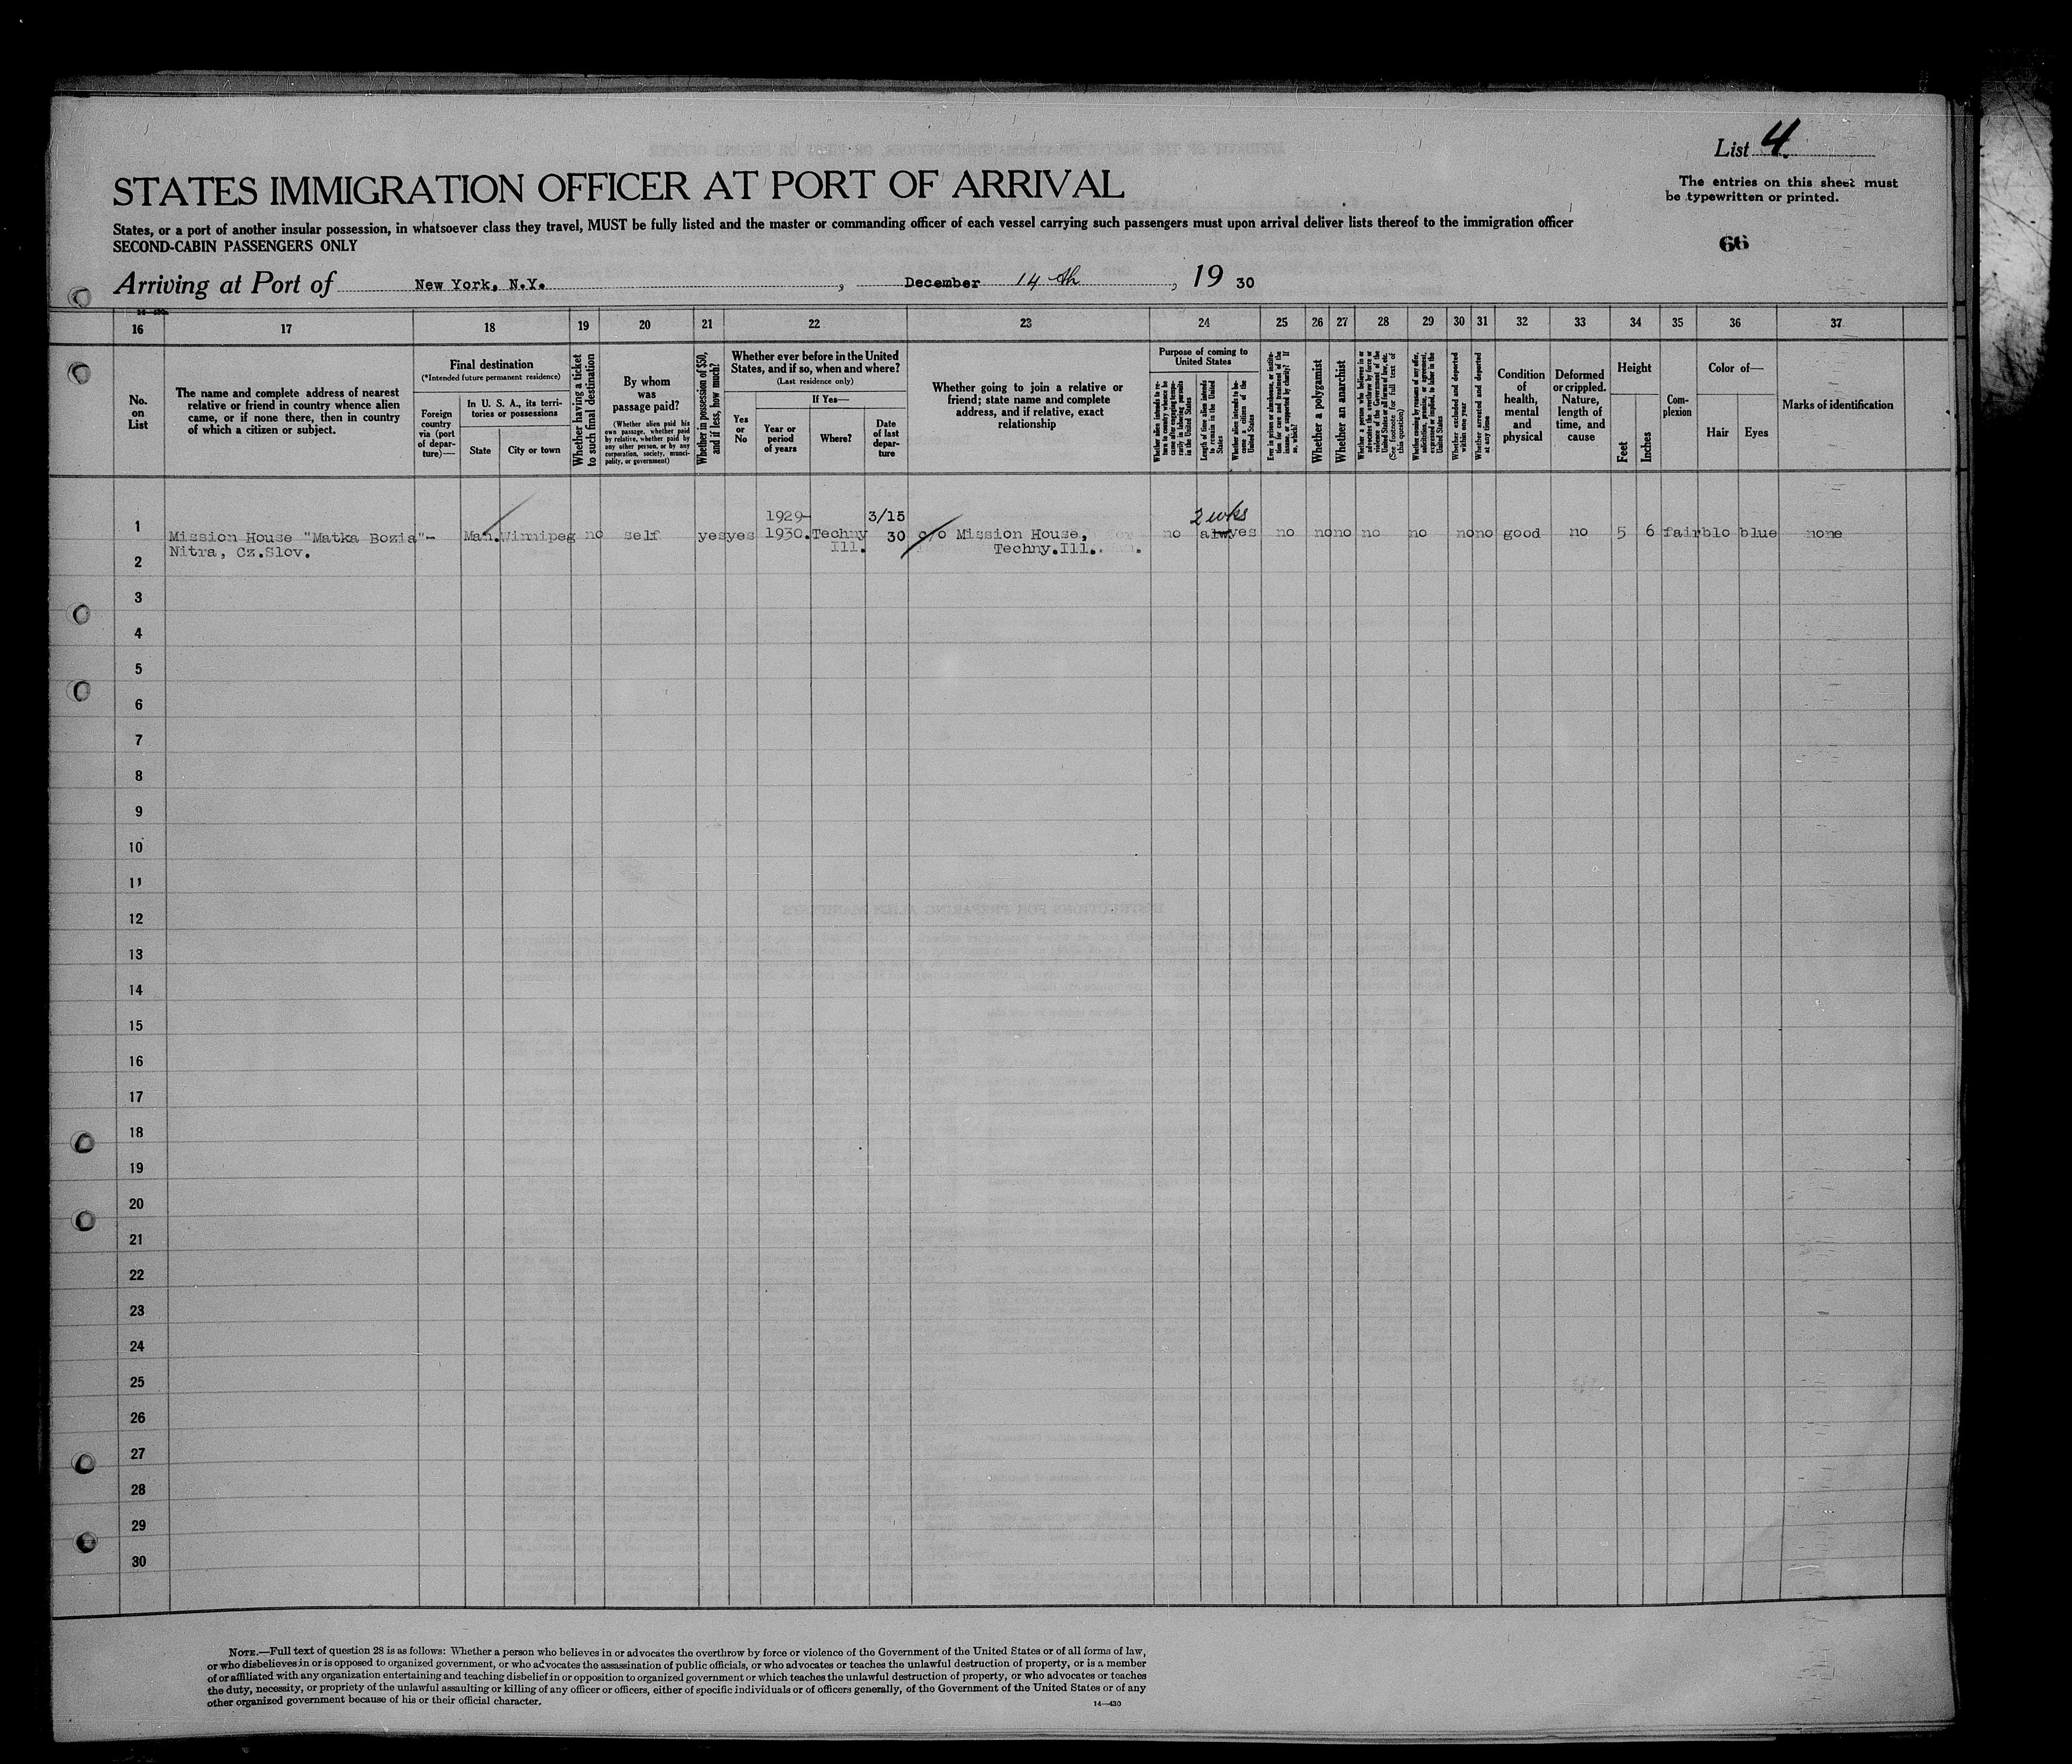 List 4.
The entries on this sheet must
be typewritten or printed.
STATES IMMIGRATION OFFICER AT PORT OF ARRIVAL
States, or a port of another insular possession, in whatsoever class they travel, MUST be fully listed and the master or commanding officer of each vessel carrying such passengers must upon arrival deliver lists thereof to the immigration officer
SECOND-CABIN PASSENGERS ONLY
66
Arriving at Port of New York, N.Y., December 14th, 19 30
16 17 18 19 20 21 22 23 24 25 26 27 28 29 30 31 32 33 34 35 36 37
No.
on
List
The name and complete address of nearest
relative or friend in country whence alien
came, or if none there, then in country
of which a citizen or subject.
Final destination
(*Intended future permanent residence)
Foreign
country
via (port
of depar-
ture)—
In U. S. A., its terri-
tories or possessions
State
City or town
Whether having a ticket
to such final destination
By whom
was
passage paid?
(Whether alien paid his
own passage, whether paid
by relative, whether paid by
any other person, or by any
corporation, society, munici-
pality, or government)
Whether in possession of $50,
and if less, how much?
Whether ever before in the United
States, and if so, when and where?
(Last residence only)
Yes
or
No
If Yes—
Year or
period
of years
Where?
Date
of last
depar-
ture
Whether going to join a relative or
friend; state name and complete
address, and if relative, exact
relationship
Purpose of coming to
United States
Length of time alien intends
to remain in the United
States
Whether alien intends to be-
come a citizen of the
United States
Whether a polygamist
Whether an anarchist
(See footnote for full text of
this question)
Whether excluded and deported
within one year
Whether arrested and deported
at any time
Condition
of
health,
mental
and
physical
Deformed
or crippled.
Nature,
length of
time, and
cause
Height
Feet
Inches
Com-
plexion
Color of—
Hair
Eyes
Marks of identification
2 wks
1929- 3/15
1 Mission House "Matka Bozia"- Man. Winnipeg no self yes yes 1930. Techny 30 c/o Mission House, no alw yes no no no no no no no good no 5 6 fair blo blue none
Nitra, Cz.Slov. Ill. Techny.Ill.
2
3
4
5
6
7
8
9
10
11
12
13
14
15
16
17
18
19
20
21
22
23
24
25
26
27
28
29
30
NOTE.—Full text of question 28 is as follows: Whether a person who believes in or advocates the overthrow by force or violence of the Government of the United States or of all forms of law,
or who disbelieves in or is opposed to organized government, or who advocates the assassination of public officials, or who advocates or teaches the unlawful destruction of property, or is a member
of or affiliated with any organization entertaining and teaching disbelief in or opposition to organized government or which teaches the unlawful destruction of property, or who advocates or teaches
the duty, necessity, or propriety of the unlawful assaulting or killing of any officer or officers, either of specific individuals or of officers generally, of the Government of the United States or of any
other organized government because of his or their official character.
14—430